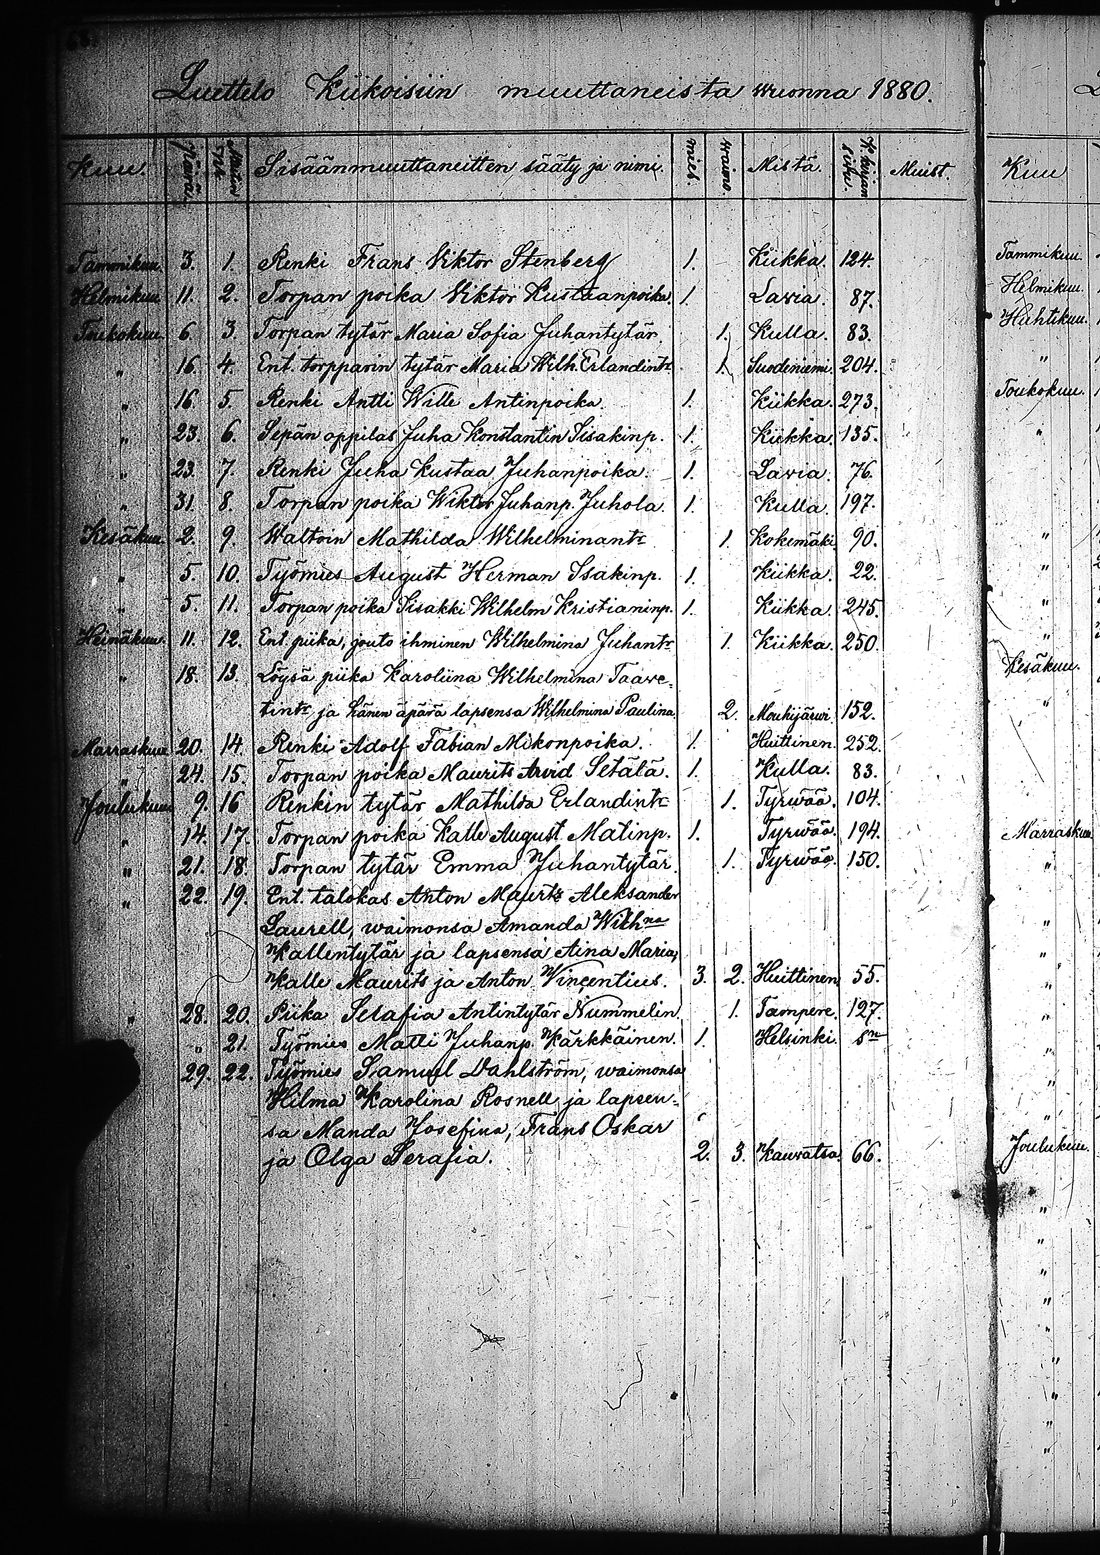 68.
Luettelo Kiikoisiin muuttaneista wuonna 1880.
Kuu. Päivä. Muuton N:o. Sisäänmuuttaneitten sääty ja nimi. mies. waimo. Mistä. Kirkonkirjan sivu. Muist.
Tammikuu. 3. 1. Renki Frans Viktor Stenberg 1. Kiikka. 124.
Helmikuu. 11. 2. Torpan poika Viktor Kustaanpoika. 1. Lavia. 87.
Toukokuu. 6. 3. Torpan tytär Maria Sofia Juhantytär. 1. Kulla. 83.
" 16. 4. Ent. torpparin tytär Maria Wilh. Erlandintr 1. Suodeniemi. 204.
" 16. 5. Renki Antti Wille Antinpoika. 1. Kiikka. 273.
" 23. 6. Sepän oppilas Juha Konstantin Iisakinp. 1. Kiikka. 135.
" 23. 7. Renki Juha Kustaa Juhanpoika. 1. Lavia. 76.
" 31. 8. Torpan poika Wiktor Juhanp. Juhola. 1. Kulla. 197.
Kesäkuu. 2. 9. Waltoin Mathilda Wilhelminantr 1. Kokemäki 90.
" 5. 10. Työmies August Herman Isakinp. 1. Kiikka. 22.
" 5. 11. Torpan poika Iisakki Wilhelm Kristianinp. 1. Kiikka. 245.
Heinäkuu. 11. 12. Ent. piika, jouto ihminen Wilhelmina Juhantr 1. Kiikka. 250.
" 18. 13. Löysä piika Karoliina Wilhelmina Taawe-
tintr ja hänen äpärä lapsensa Wilhelmina Paulina. 2. Mouhijärwi. 152.
Marraskuu. 20. 14. Renki Adolf Fabian Mikonpoika. 1. Huittinen. 252.
" 24. 15. Torpan poika Maurits Arvid Setälä. 1. Kulla. 83.
Joulukuu. 9. 16 Renkin tytär Mathilda Erlandintr 1. Tyrwää. 104.
" 14. 17. Torpan poika Kalle August Matinp. 1. Tyrwää. 194.
" 21. 18. Torpan tytär Emma Juhantytär. 1. Tyrwää. 150.
" 22. 19. Ent. talokas Anton Maurits Aleksander
Laurell, waimonsa Amanda Wilhna
Kallentytär ja lapsensa Aina Maria,
Kalle Maurits ja Anton Vincentius. 3. 2. Huittinen 55.
" 28. 20. Piika Serafia Antintytär Nummelin. 1. Tampere. 127.
" 21. Työmies Matti Juhanp. Kärkkäinen. 1. Helsinki.
29. 22. Työmies Samuel Dahlström, waimonsa
Hilma Karolina Rosnell ja lapsen-
sa Manda Josefina, Frans Oskar
ja Olga Serafia. 2. 3. Kauvatsa. 66.
Kuu
Tammikuu.
Helmikuu.
Huhtikuu.
"
Toukokuu.
"
"
"
"
"
Kesäkuu.
"
Marraskuu
"
"
"
"
"
"
"
"
Joulukuu.
"
"
"
"
"
"
"
"